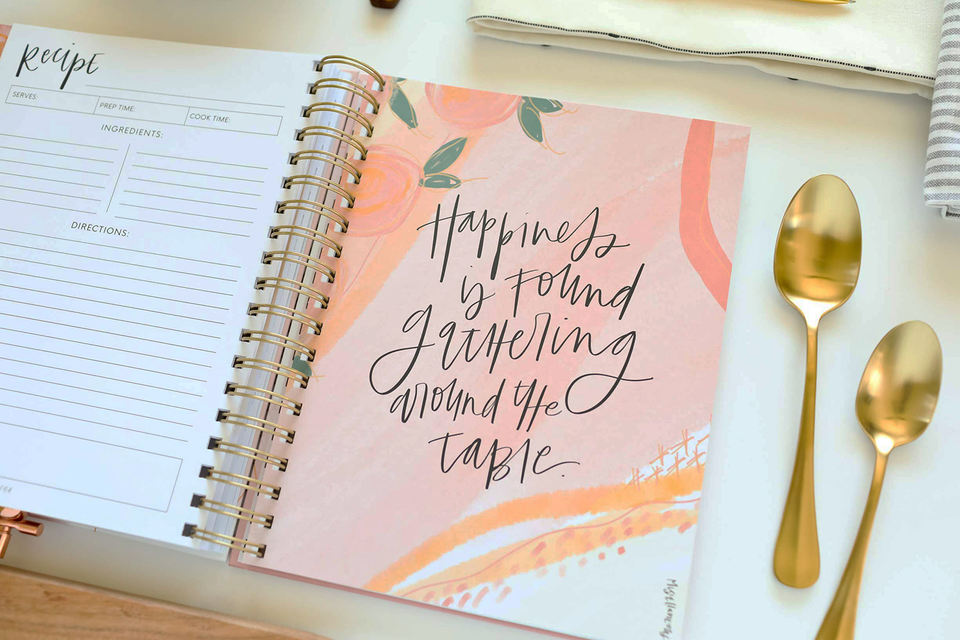 Recipe
SERVES:
PREP TIME:
COOK TIME:
INGREDIENTS:
DIRECTIONS:
Happiness
is found
gathering
around the
table.
Miscellaneous